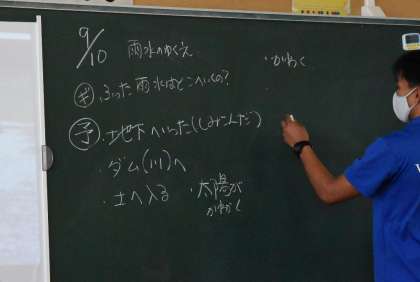 9/10 雨水のゆくえ
・かわく
ギ ふった雨水はどこへいくの?
予 ・地下へいった(しみこんだ)
・ダム(川)へ
・土へ入る
・太陽が
かわかく